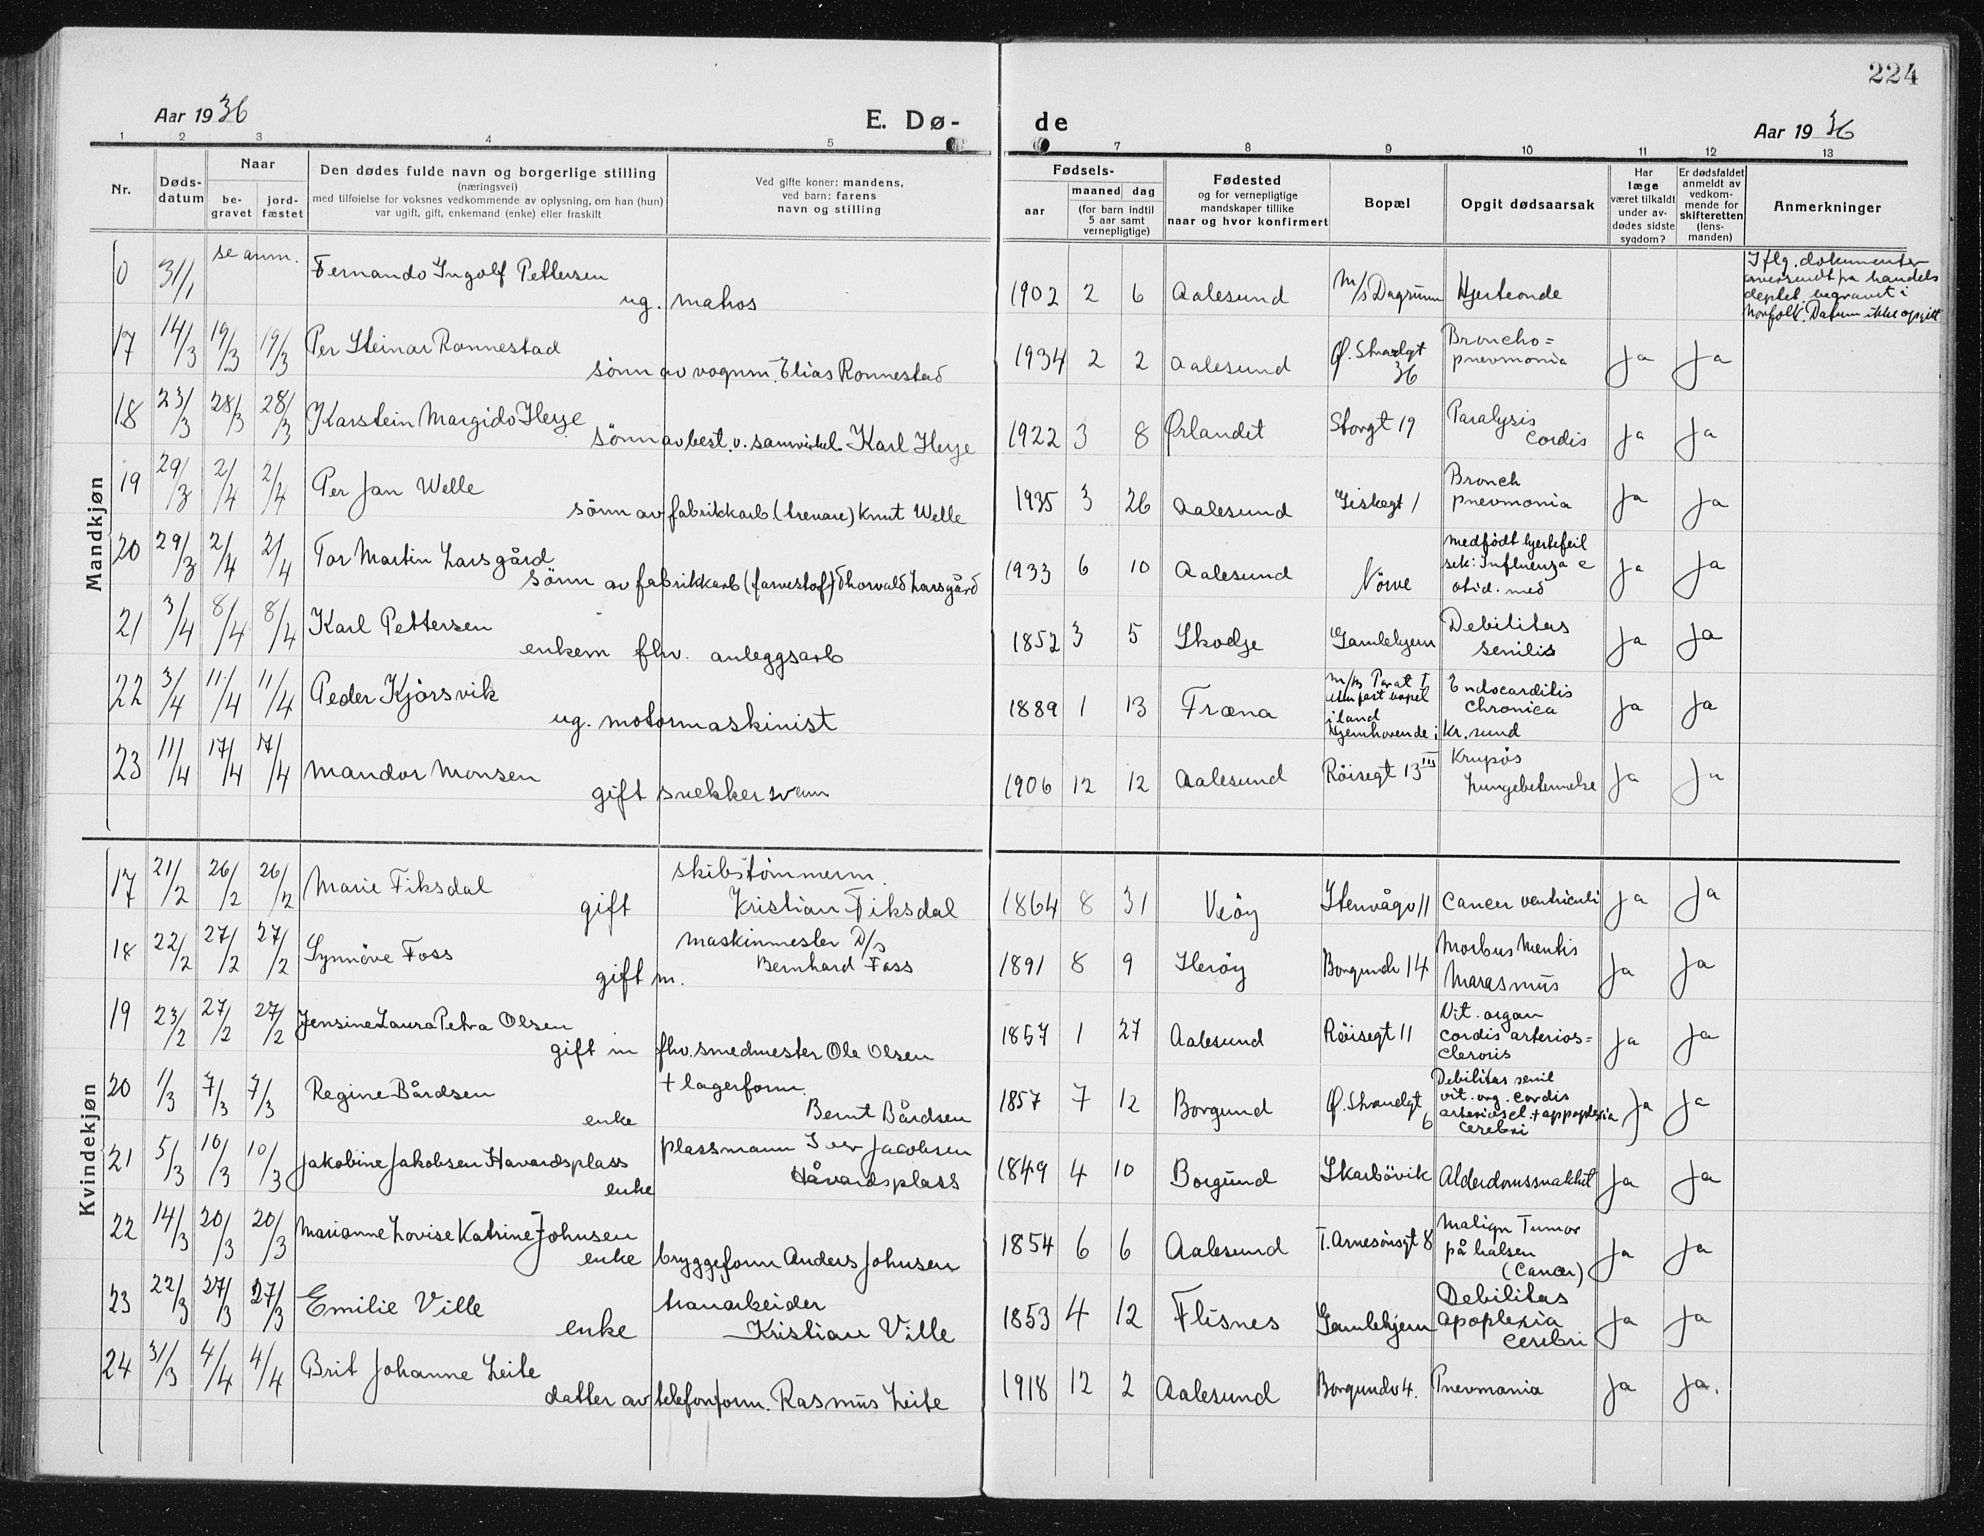 224
Aar 1936
E. Dø-
de
Aar 1936
1 2 3 4 5 7 8 9 10 11 12 13
Nr.
Døds-
datum
Naar
be-
gravet
jord-
fæstet
Den dødes fulde navn og borgerlige stilling
(næringsvei)
med tilføielse for voksnes vedkommende av oplysning, om han (hun)
var ugift, gift, enkemand (enke) eller fraskilt
Ved gifte koner: mandens,
ved barn: farens
navn og stilling
Fødsels-
aar
maaned dag
(for barn indtil
5 aar samt
vernepligtige)
Fødested
og for vernepligtige
mandskaper tillike
naar og hvor konfirmert
Bopæl
Opgit dødsaarsak
Har
læge
været tilkaldt
under av-
dødes sidste
sygdom?
Er dødsfaldet
anmeldt av
vedkom-
mende for
skifteretten
(lens-
manden)
Anmerkninger
Mandkjøn
0 31/1 se anm. Fernando Ingolf Pettersen
ug. matros
1902 2 6 Aalesund M/s Dagrunn Hjerteonde
Iflg. dokumenter
oversendt fra handels
deptet. begravet i
Norfolk. Datum ikke opgitt
17 14/3 19/3 19/3 Per Steinar Ronnestad
sönn av vognm. Elias Ronnestad
1934 2 2 Aalesund Ø. Strandgt
36
Broncho=
pnevmonia
Ja Ja
18 23/3 28/3 28/3 Karstein Margido Herje
sönn av best. v. samvirkel. Karl Herje
1922 3 8 Ørlandet Storgt 19 Paralysis
Cordis
Ja Ja
19 29/3 2/4 2/4 Per Jan Welle
sönn av fabrikkarb (trevare) Knut Welle
1935 3 26 Aalesund Giskegt 1 Bronch
pnevmonia
Ja Ja
20 29/3 2/4 2/4 Tor Martin Larsgård
sönn av fabrikkarb (farvestof) Thorvald Larsgård
1933 6 10 Aalesund Nörve
medfödt hjertefeil
sek: Influenza c
otid. med
Ja Ja
21 3/4 8/4 8/4 Karl Pettersen
enkem fhv. anleggsarb
1852 3 5 Skodje Gamlehjem Debilitas
senilis
Ja Ja
22 3/4 11/4 11/4 Peder Kjörsvik
ug. motormaskinist
1889 1 13 Fræna
uten fast bopel
i land
hjemhörende i Kr. sund
Endocarditis
chronica
Ja Ja
23 11/4 17/4 17/4 Mandor Monsen
gift snekkersvenn
1906 12 12 Aalesund Röisegt 13 III Krupös
lungebetennelse
Ja Ja
Kvindekjøn
17 21/2 26/2 26/2 Marie Fiksdal
gift
skibstömmerm.
Kristian Fiksdal
1864 8 31 Veöy Stenvågv 11 Cancer ventriculi Ja Ja
18 22/2 27/2 27/2 Synnöve Foss
gift m.
maskinmester D/s
Bernhard Foss
1891 8 9 Heröy Borgundv 14 Morbus Mentis
Marasmus
Ja Ja
19 23/2 27/2 27/2 Jensine Laura Petra Olsen
gift m fhv. smedmester Ole Olsen
1857 1 27 Aalesund Röisegt 11 Vit. organ
cordis arterios=
clerosis
Ja Ja
20 1/3 7/3 7/3 Regine Bårdsen
enke
+ lagerform.
Bernt Bårdsen
1857 7 12 Borgund Ø. Strandgt
6
Debilitas senil
vit. org. cordis
arterioscl. + appoplexia
cerebri
Ja Ja
21 5/3 10/3 10/3 Jakobine Jakobsen Havardsplass
enke
plassmann Iver Jacobsen
Håvardsplass
1849 4 10 Borgund Skarbövik Alderdomssvakhet Ja Ja
22 14/3 20/3 20/3 Marianne Lovise Katrine Johnsen
enke bryggeform Anders Johnsen
1854 6 6 Aalesund T. Arnesönsgt 8 Malign Tumor
på halsen
(Cancer)
Ja Ja
23 22/3 27/3 27/3 Emilie Ville
enke
tranarbeider
Kristian Ville
1853 4 12 Flisnes Gamlehjem Debilitas
apoplexia
cerebri
Ja Ja
24 31/3 4/4 4/4 Brit Johanne Leite
datter av telefonform. Rasmus Leite
1918 12 2 Aalesund Borgundv 4. Pnevmonia Ja Ja.